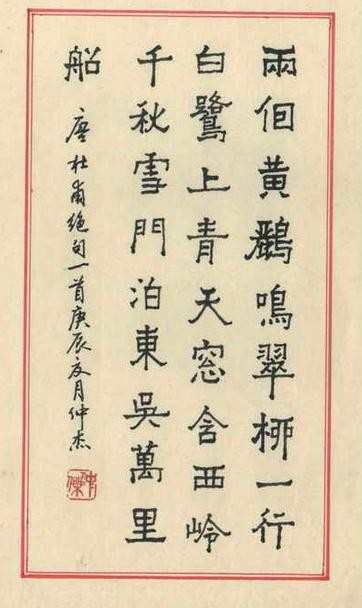 兩個黃鸝鳴翠柳一行
白鷺上青天窓含西岭
千秋雪門泊東吳萬里
船
唐杜甫絕句一首庚辰夏月仲杰
仲傑